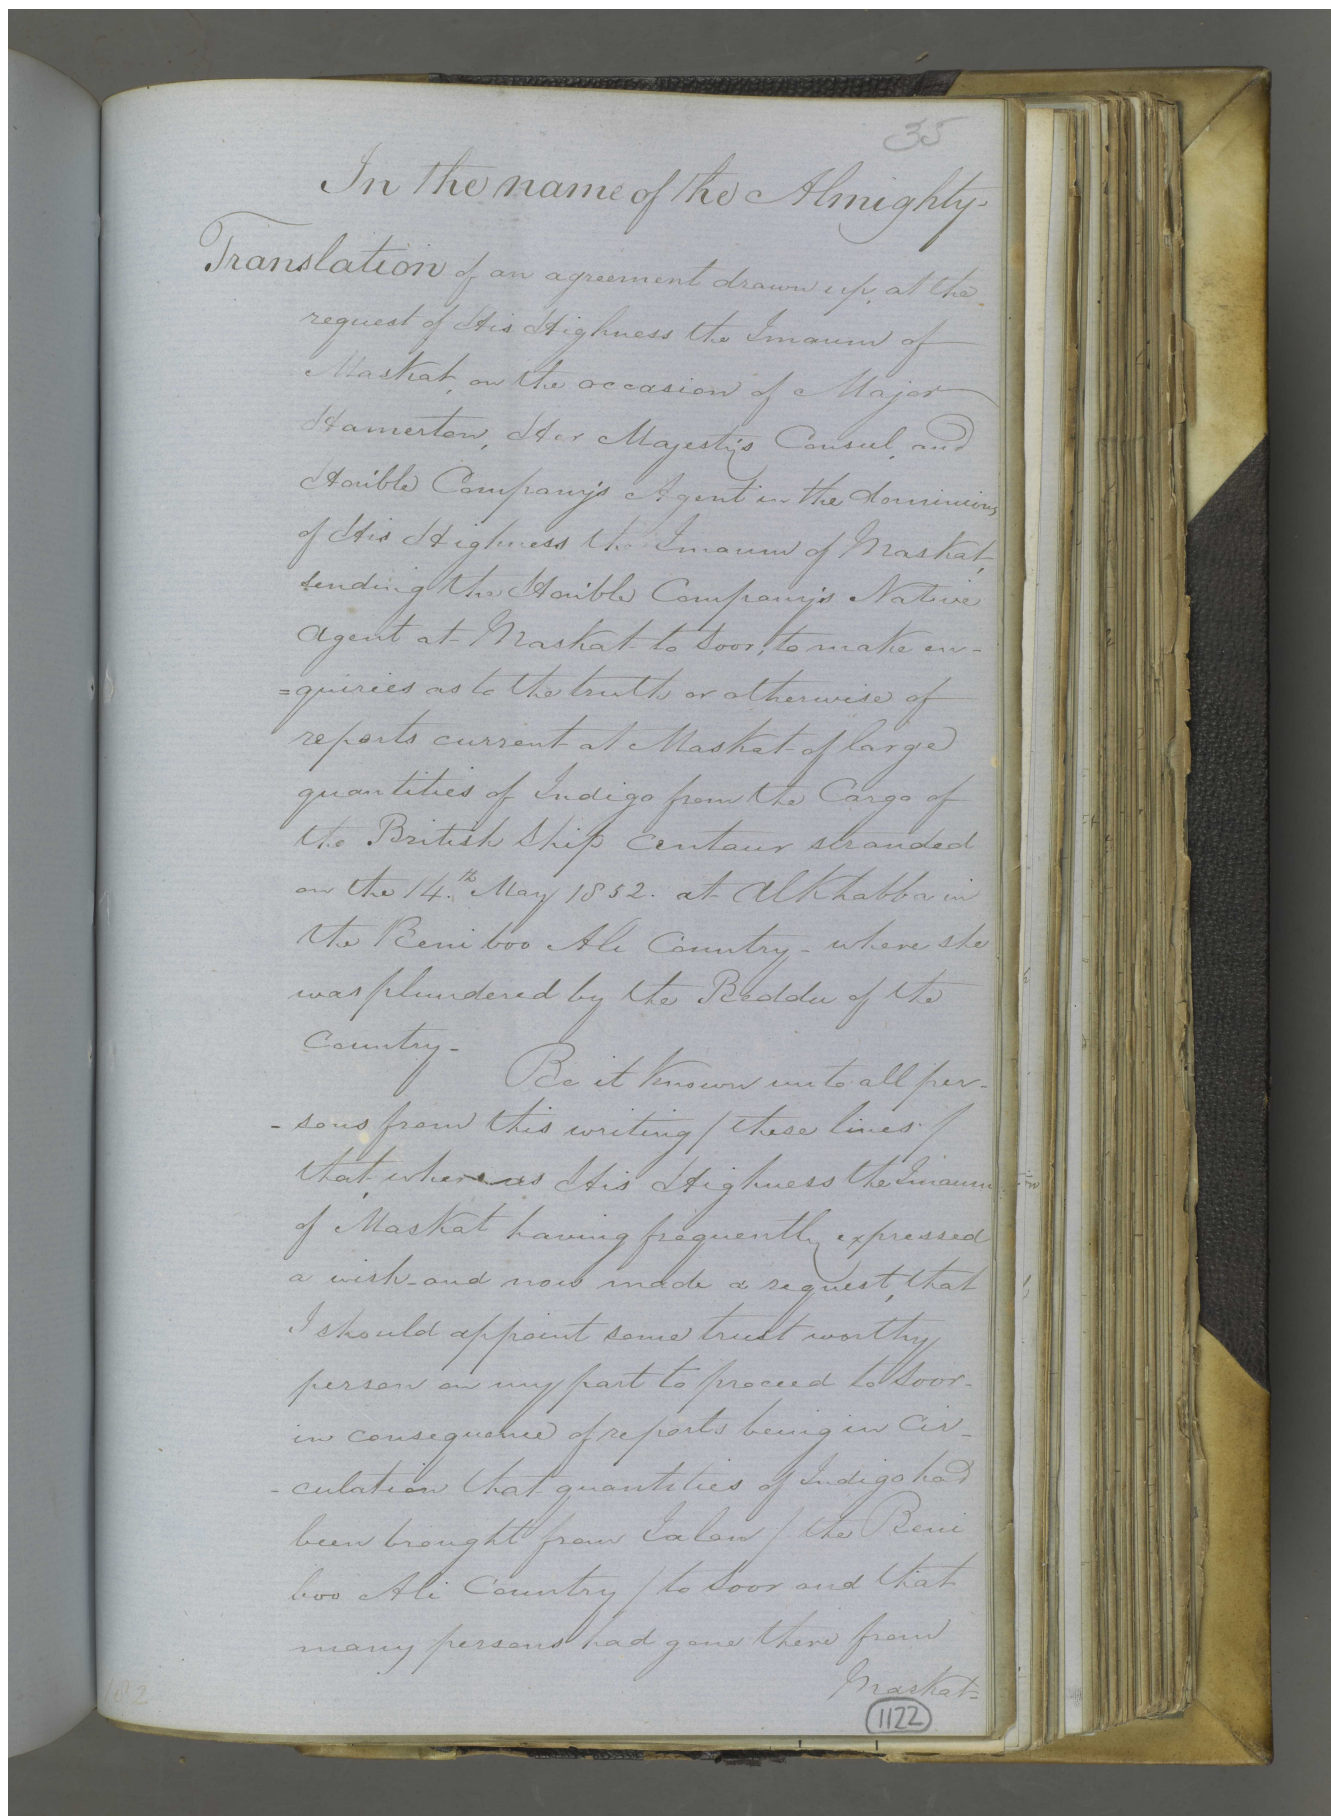 35
In the name of the Almighty-
Translation of an agreement drawn up, at the
request of His Highness the Imaum of
Maskat, on the occasion of Major
Hamerton, Her Majesty's Consul, and
Hon'ble Company's Agent in the dominions
of His Highness the Imaum of Maskat,
sending the Hon'ble Company's Native
Agent at Maskat to Soor, to make en-
=quiries as to the truth or otherwise of
reports current at Maskat of large
quantities of Indigo from the Cargo of
the British Ship Centaur stranded
on the 14.th May 1852. at Alkhabba in
the Beni boo Ali Country - where she
was plundered by the Beddu of the
Country-
Be it known unto all per-
-sons from this writing / these lines /
that, whereas His Highness the Imaum
of Maskat having frequently expressed
a wish- and now made a request, that
I should appoint some trust worthy
person on my part to proceed to Soor-
in consequence of reports being in Cir-
-culation that quantities of Indigo had
been brought from Jalan / the Beni
boo Ali Country / to Soor and that
many persons had gone there from
Maskat-
1122